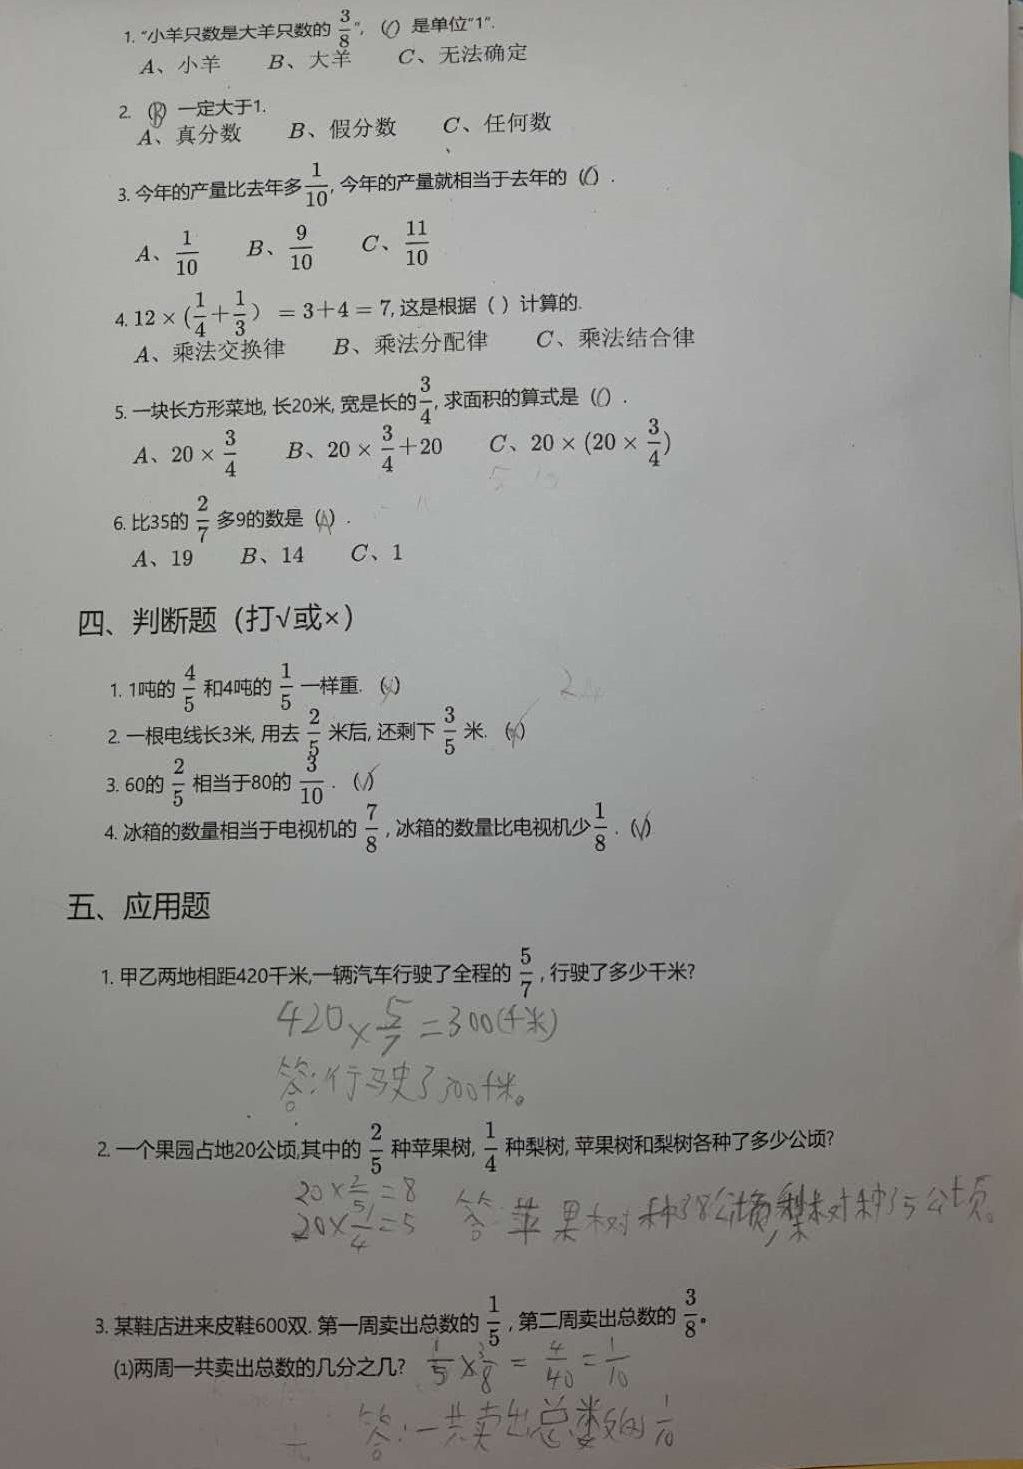 1. “小羊只数是大羊只数的 3/8”, (C) 是单位“1”.
A、小羊 B、大羊 C、无法确定
2. (B) 一定大于1.
A、真分数 B、假分数 C、任何数
3. 今年的产量比去年多 1/10, 今年的产量就相当于去年的 (C) .
A、1/10 B、9/10 C、11/10
4. 12 × (1/4 + 1/3) = 3+4 = 7, 这是根据 ( ) 计算的.
A、乘法交换律 B、乘法分配律 C、乘法结合律
5. 一块长方形菜地, 长20米, 宽是长的 3/4, 求面积的算式是 (C) .
A、20 × 3/4 B、20 × 3/4 + 20 C、20 × (20 × 3/4)
6. 比35的 2/7 多9的数是 (A) .
A、19 B、14 C、1
四、判断题（打√或×）
1. 1吨的 4/5 和4吨的 1/5 一样重. (×)
2. 一根电线长3米, 用去 2/5 米后, 还剩下 3/5 米. (×)
3. 60的 2/5 相当于80的 3/10 . (√)
4. 冰箱的数量相当于电视机的 7/8 , 冰箱的数量比电视机少 1/8 . (√)
五、应用题
1. 甲乙两地相距420千米,一辆汽车行驶了全程的 5/7 , 行驶了多少千米?
420 × 5/7 = 300(千米)
答:行驶了300千米。
2. 一个果园占地20公顷,其中的 2/5 种苹果树, 1/4 种梨树, 苹果树和梨树各种了多少公顷?
20 × 2/5 = 8
20 × 1/4 = 5
答:苹果树种了8公顷,梨树种了5公顷。
3. 某鞋店进来皮鞋600双. 第一周卖出总数的 1/5 , 第二周卖出总数的 3/8。
(1)两周一共卖出总数的几分之几? 1/5 × 3/8 = 4/40 = 1/10
答:一共卖出总数的 1/10